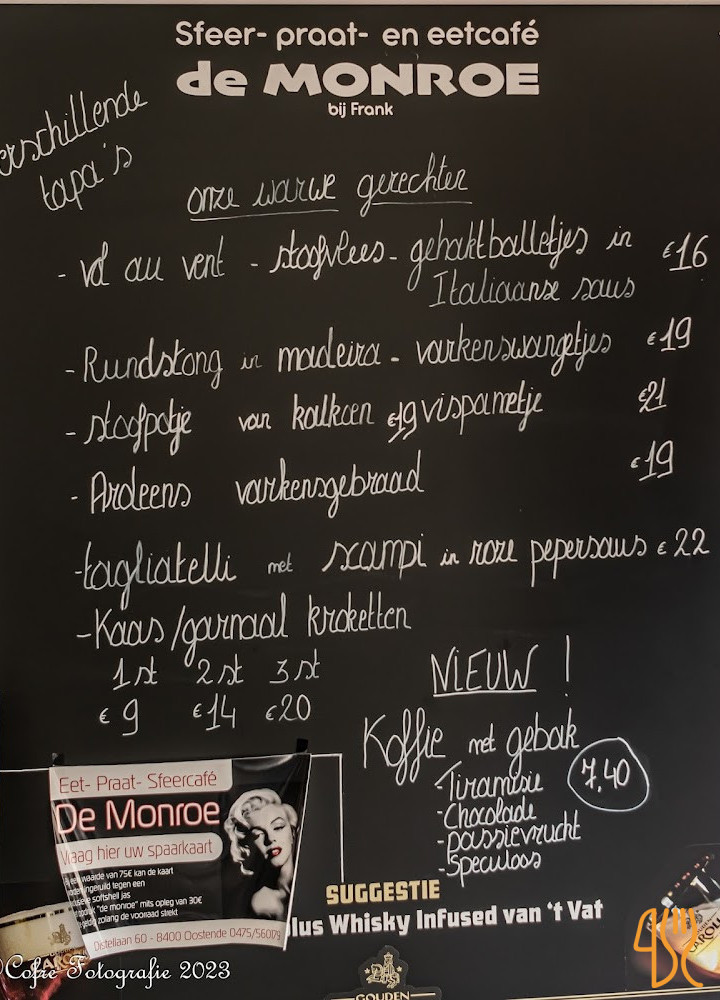 Sfeer- praat- en eetcafé
de MONROE
bij Frank
erschillende
tapa's
onze warme gerechten
- vol au vent - stoofvlees - gehaktballetjes in €16
Italiaanse saus
- Rundstong in madeira - varkenswangetjes €19
- stoofpotje van kalkoen €19 vispannetje €21
- Ardeens varkensgebraad €19
- tagliatelli met scampi in roze pepersaus € 22
- Kaas/garnaal kroketten
1 st 2 st 3 st
€ 9 €14 €20
NIEUW !
Koffie met gebak
7,40
- Tiramisu
- Chocolade
- passievrucht
- Speculoos
Eet- Praat- Sfeercafé
De Monroe
Vraag hier uw spaarkaart
waarde van 75€ kan de kaart
ingeruild tegen een
softshell jas
"de monroe" mits opleg van 30€
zolang de voorraad strekt
Distellaan 60 - 8400 Oostende 0475/560179
SUGGESTIE
lus Whisky Infused van 't Vat
GOUDEN
CAROL
©Cofie Fotografie 2023